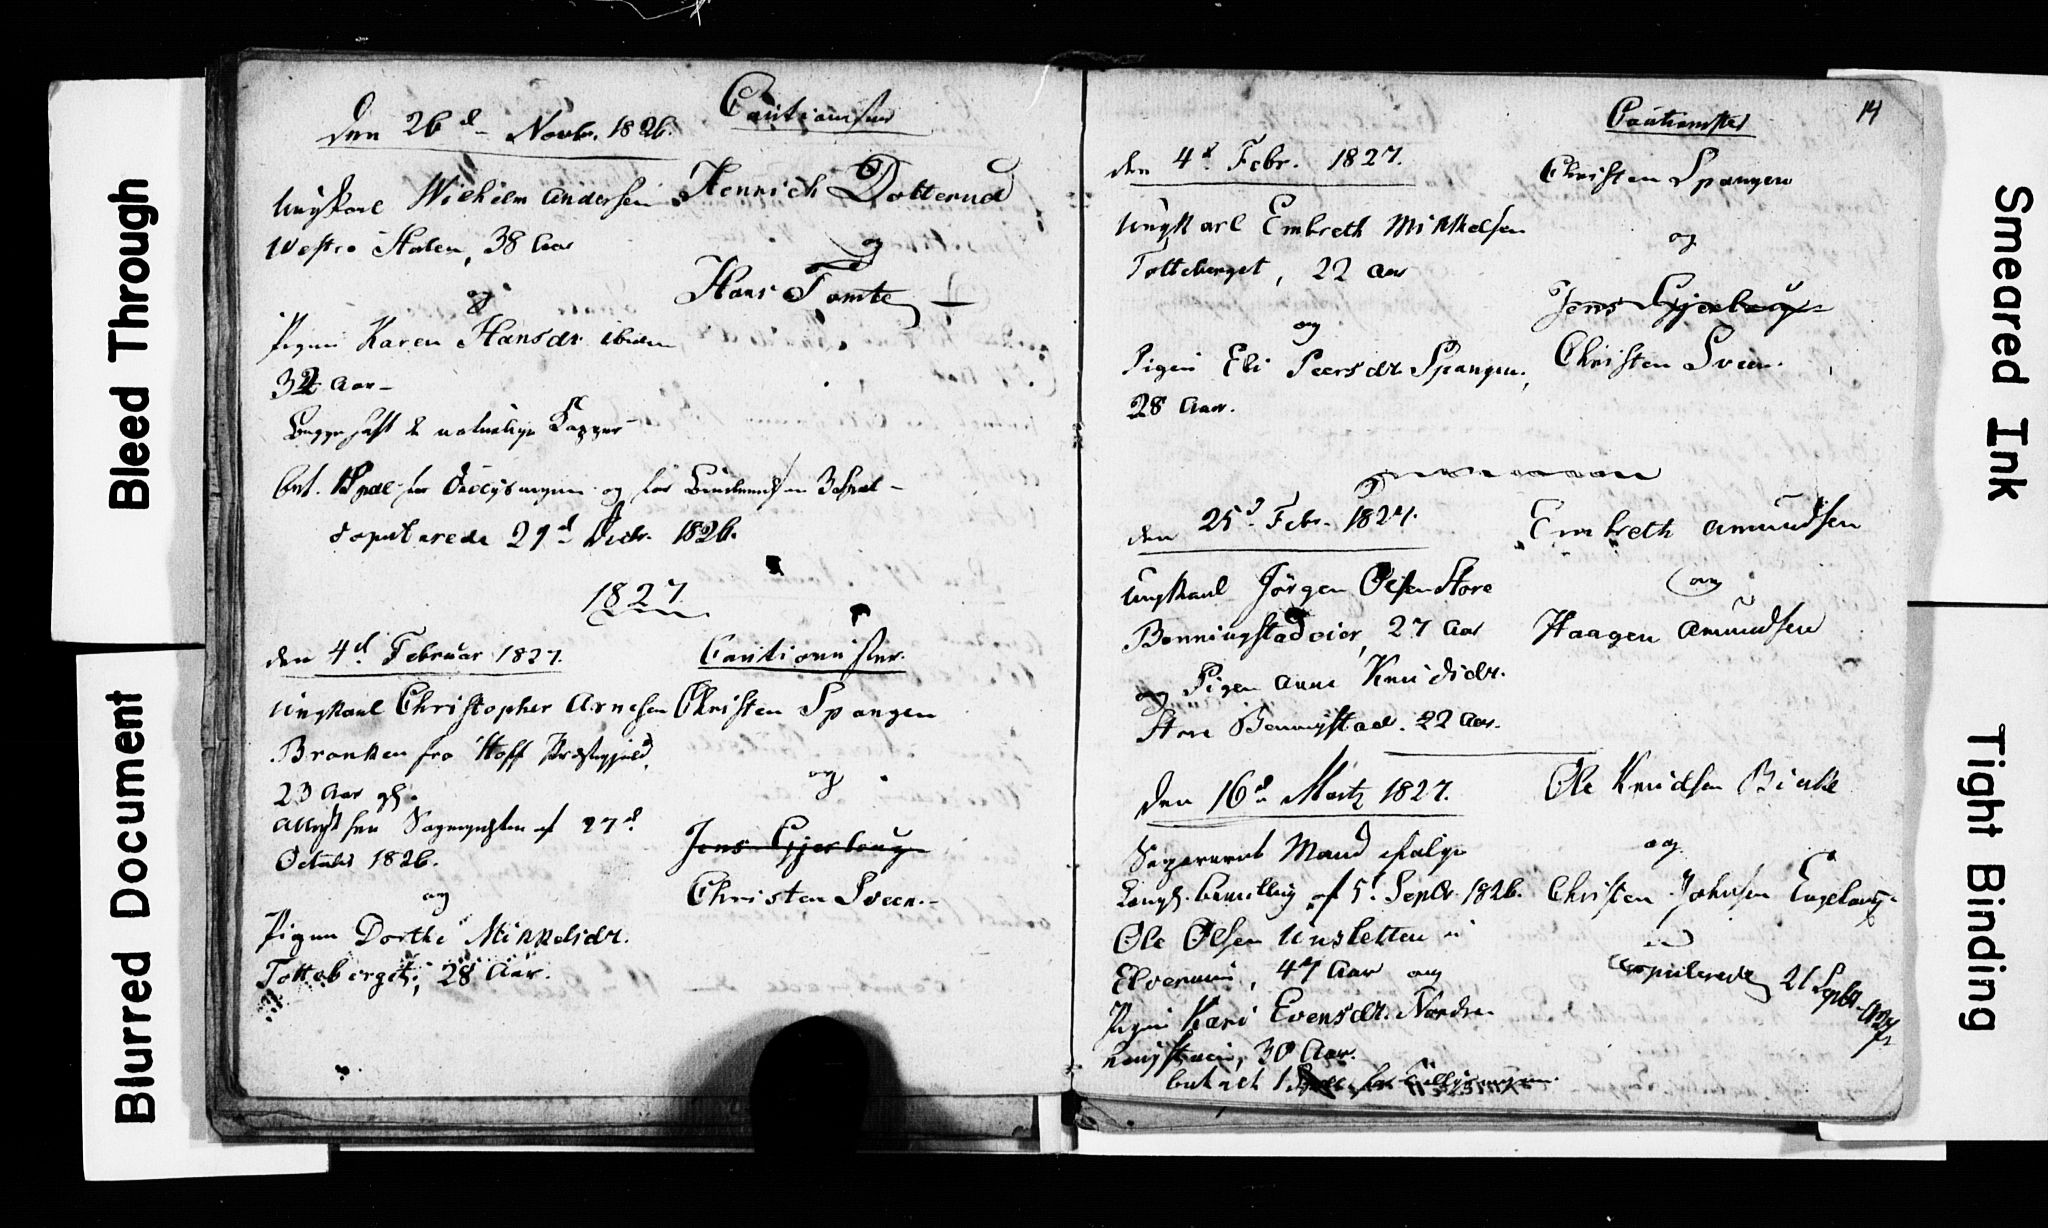 Bleed Through
Blurred Document
Smeared Ink
Tight Binding
den 26d Novbr. 1826.
Cautionister
Ungkarl Wilhelm Andersen
Westre Halen, 38 Aar
og
Pigen Karen Hansdr. ibidem
32 Aar
Begge havt & naturlige Kopper
bet. 1 Spdl. for og for 3 Spdl.
Copulerede 29d Decbr. 1826.
Henrich Dotterud
og
Hans Tomte
1827.
den 4d Februar 1827.
Cautionister.
Ungkarl Christopher Arnesen
Bronken fra Hoff Præstegjeld,
23 Aar gl.
af 27d
October 1826.
og
Pigen Dorthe Mikkelsdr.
Totteberget, 28 Aar.
Christen Spangen
og
Jens Gjerlaug
Christen Sveen.
14
Cautionister
den 4d Febr. 1827.
Ungkarl Embreth Mikkelsen
Totteberget, 22 Aar
og
Pigen Eli Peersdr. Spangen,
28 Aar.
Christen Spangen
og
Jens Gjerlaug
Christen Sveen.
den 25d Febr. 1827.
Ungkarl Jørgen Olsen Store
Benningstadeier, 27 Aar
og Pigen Anne Knudsdr.
Store Benningstad. 22 Aar.
Embreth Amundsen
og
Haagen Amundsen
den 16d Martz 1827.
Separeret Mand ifølge
Kongl. Bevilling af 5t Septbr. 1826.
Ole Olsen i
Elverum, 47 Aar og
Pigen Kari Evensdr. Nordre
30 Aar.
betalt 1
Ole Knudsen
og
Christen Johnsen Engelaug
Copulerede 21 Septbr. 1827